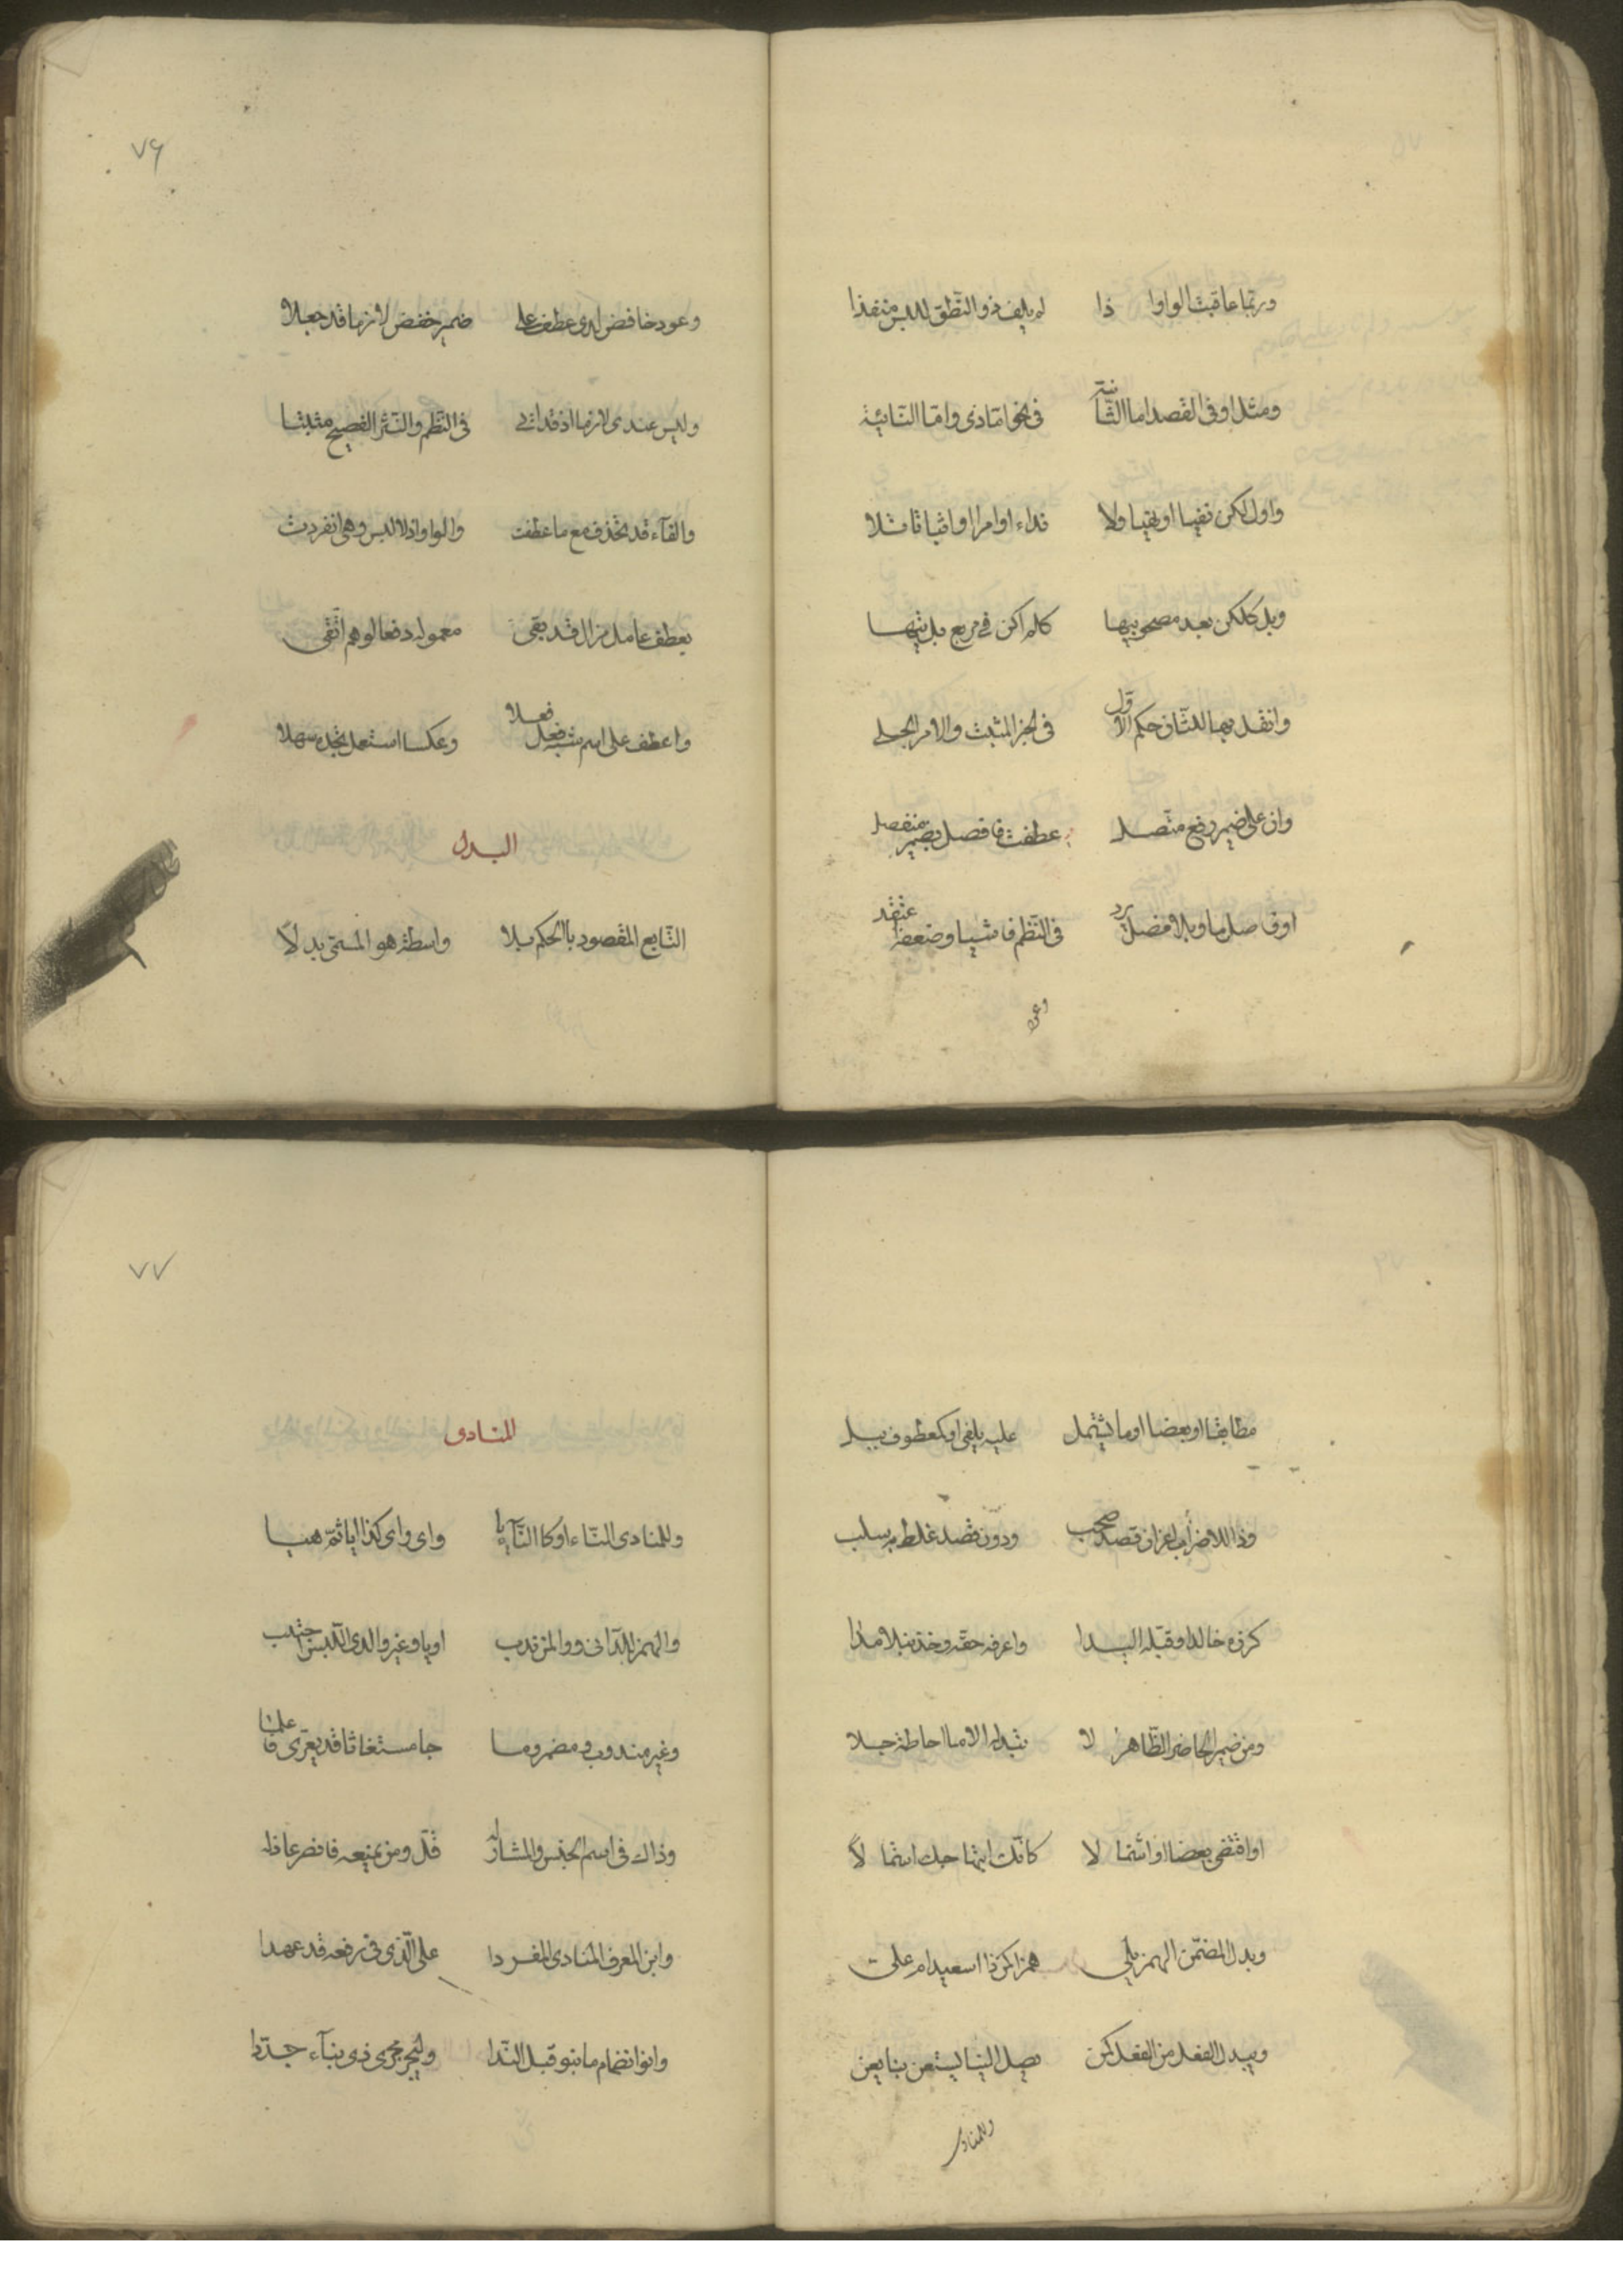 وربما عاقبت الواو اذا لم يلف ذو النطق للبس منفذا
ومثل او فى القصد اما الثانية فى نحو اما ذى واما النائية
واول لكن نفيا او نهيا ولا نداء او امرا او اثباتا تلا
وبل كلكن بعد مصحوبيها كلم اكن فى مربع بل تيها
وانقل بها للثان حكم الاول فى الخبر المثبت والامر الجلى
وان على ضمير رفع متصل عطفت فافصل بضمير منفصل
او فاصل ما وبلا فصل يرد فى النظم فاشيا وضعفه اعتقد
وعود
٧۶
وعود خافض لدى عطف على ضمير خفض لازما قد جعلا
وليس عندى لازما اذ قد اتى فى النظم والنثر الفصيح مثبتا
والفآء قد تحذف مع ما عطفت والواو اذ لا لبس وهى انفردت
بعطف عامل مزال قد بقى معموله دفعا لوهم اتقى
واعطف على اسم شبه فعل فعلا وعكسا استعمل تجده سهلا
البدل
التابع المقصود باالحكم بلا واسطة هو المسمى بدلاً
مطابقا او بعضا او ما يشتمل عليه يلفى او كمعطوف ببل
وذا للاضراب اعز ان قصدا صحب ودون قصد غلط به سلب
كزره خالدا وقبله اليدا واعرفه حقه وخذ نبلا مدا
ومن ضمير الحاضر الظاهر لا تبدله الا ما احاطة جلا
او اقتضى بعضا او اشتما لا كانك ابتهاجك استما لاً
وبدل المضمن الهمز يلى همزا كمن ذا اسعيد ام على
ويبدل الفعل من الفعل كمن يصل الينا يستعن بنا يعن
وللمنادى
٧٧
المنادى
وللمنادى النآء او كاالنآء يا واى واى كذا ايا ثم هيا
والهمز للدانى ووا لمن ندب او يا وغير وا لدى اللبس اجتنب
وغير مندوب ومضمر وما جا مستغاثا قد يعرى فاعلما
وذاك فى اسم الجنس والمشار له قل ومن يمنعه فانصر عاذله
وابن المعرف المنادى المفردا على الذى فى رفعه قد عهدا
وانو انضمام ما بنو قبل الندا وليجر مجرى ذى بنآء جددا